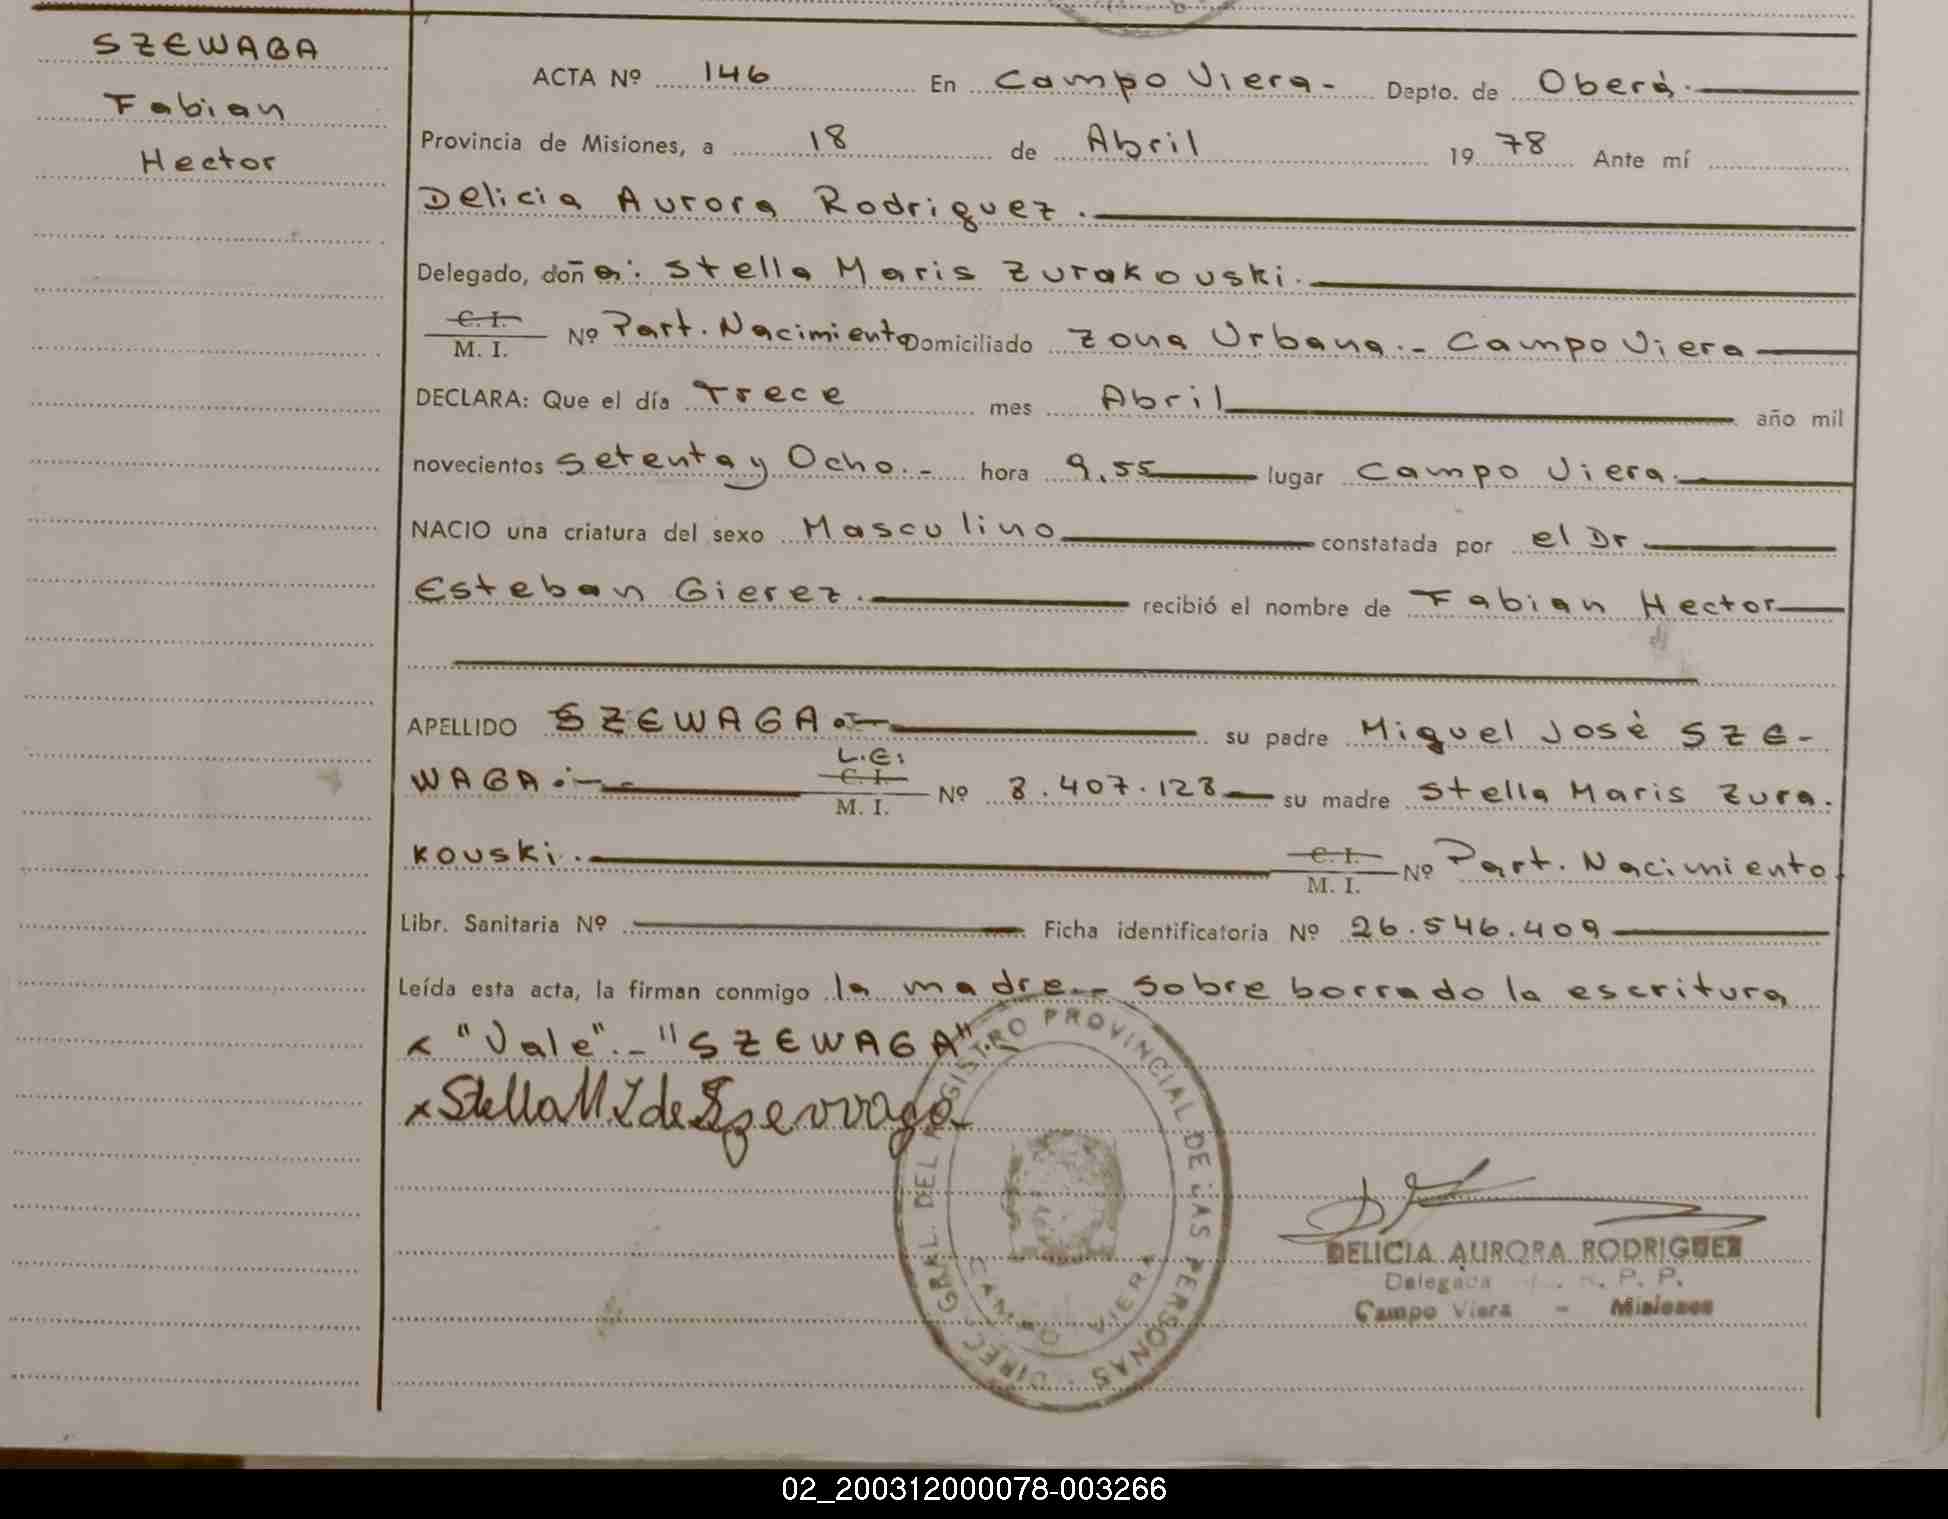 SZEWAGA
Fabian
Hector
ACTA Nº 146 En Campo Viera.- Depto. de Oberá.
Provincia de Misiones, a 18 de Abril 1978 Ante mí
Delicia Aurora Rodriguez.
Delegado, doña: Stella Maris Zurakouski.
C. I.
M. I. Nº Part. Nacimiento Domiciliado Zona Urbana.- Campo Viera
DECLARA: Que el día Trece mes Abril año mil
novecientos Setenta y Ocho.- hora 9,55 lugar Campo Viera.
NACIO una criatura del sexo Masculino constatada por el Dr
Esteban Gierez. recibió el nombre de Fabian Hector
APELLIDO SZEWAGA.- su padre Miguel José SZE-
L.E:
WAGA.- C. I. M. I. Nº 8.407.128 su madre Stella Maris Zura.
kouski. C. I. M. I. Nº Part. Nacimiento.
Libr. Sanitaria Nº Ficha identificatoria Nº 26.546.409
Leída esta acta, la firman conmigo la madre.- Sobre borrado la escritura
x "Vale".- "SZEWAGA"
x Stella M Z de Szewaga
DIREC. GRAL. DEL REGISTRO PROVINCIAL DE LAS PERSONAS
CAMPO VIERA
DELICIA AURORA RODRIGUEZ
Delegada P. P.
Campo Viera - Misiones
02_200312000078-003266